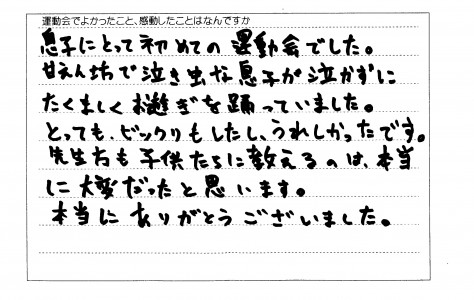 運動会でよかったこと、感動したことはなんですか
息子にとって初めての運動会でした。
甘えん坊で泣き虫な息子が泣かずに
たくましくお遊ぎを踊っていました。
とっても、ビックリもしたし、うれしかったです。
先生方も子供たちに教えるのは、本当
に大変だったと思います。
本当にありがとうございました。